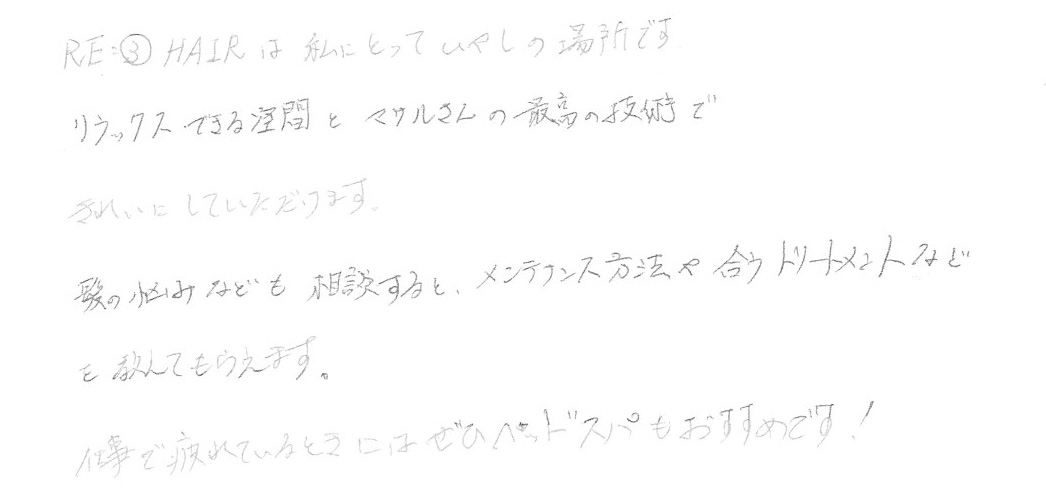 RE:③ HAIR は 私にとっていやしの場所です
リラックスできる空間と マサルさんの最高の技術で
きれいにしていただけます。
髪の悩みなども 相談すると、メンテナンス方法や合うトリートメントなど
を教えてもらえます。
仕事で疲れているときにはぜひヘッドスパもおすすめです!